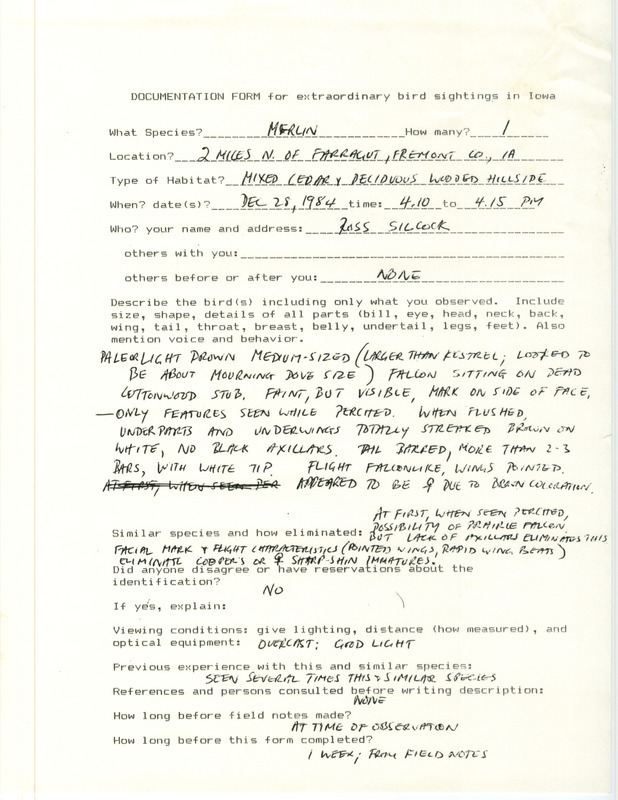 DOCUMENTATION FORM for extraordinary bird sightings in Iowa
What Species? MERLIN How many? 1
Location? 2 MILES N. OF FARRAGUT, FREMONT CO., IA
Type of Habitat? MIXED CEDAR & DECIDUOUS WOODED HILLSIDE
When? date(s)? DEC 28, 1984 time: 4.10 to 4.15 PM
Who? your name and address: ROSS SILCOCK
others with you:
others before or after you: NONE
Describe the bird(s) including only what you observed. Include
size, shape, details of all parts (bill, eye, head, neck, back,
wing, tail, throat, breast, belly, undertail, legs, feet). Also
mention voice and behavior.
PALE OR LIGHT BROWN MEDIUM-SIZED (LARGER THAN KESTREL; LOOKED TO
BE ABOUT MOURNING DOVE SIZE) FALCON SITTING ON DEAD
COTTONWOOD STUB. FAINT, BUT VISIBLE, MARK ON SIDE OF FACE,
—ONLY FEATURES SEEN WHILE PERCHED. WHEN FLUSHED,
UNDERPARTS AND UNDERWINGS TOTALLY STREAKED BROWN ON
WHITE, NO BLACK AXILLARS. TAIL BARRED, MORE THAN 2-3
BARS, WITH WHITE TIP. FLIGHT FALCONLIKE, WINGS POINTED.
AT FIRST, WHEN SEEN PER APPEARED TO BE ♀ DUE TO BROWN COLORATION.
AT FIRST, WHEN SEEN PERCHED,
POSSIBILITY OF PRAIRIE FALCON,
Similar species and how eliminated: BUT LACK OF AXILLARS ELIMINATES THIS
FACIAL MARK & FLIGHT CHARACTERISTICS (POINTED WINGS, RAPID WING BEATS)
ELIMINATE COOPER'S OR ♀ SHARP-SHIN IMMATURES.
Did anyone disagree or have reservations about the
identification?
NO
If yes, explain:
Viewing conditions: give lighting, distance (how measured), and
optical equipment: OVERCAST; GOOD LIGHT
Previous experience with this and similar species:
SEEN SEVERAL TIMES THIS & SIMILAR SPECIES
References and persons consulted before writing description:
NONE
How long before field notes made?
AT TIME OF OBSERVATION
How long before this form completed?
1 WEEK; FROM FIELD NOTES